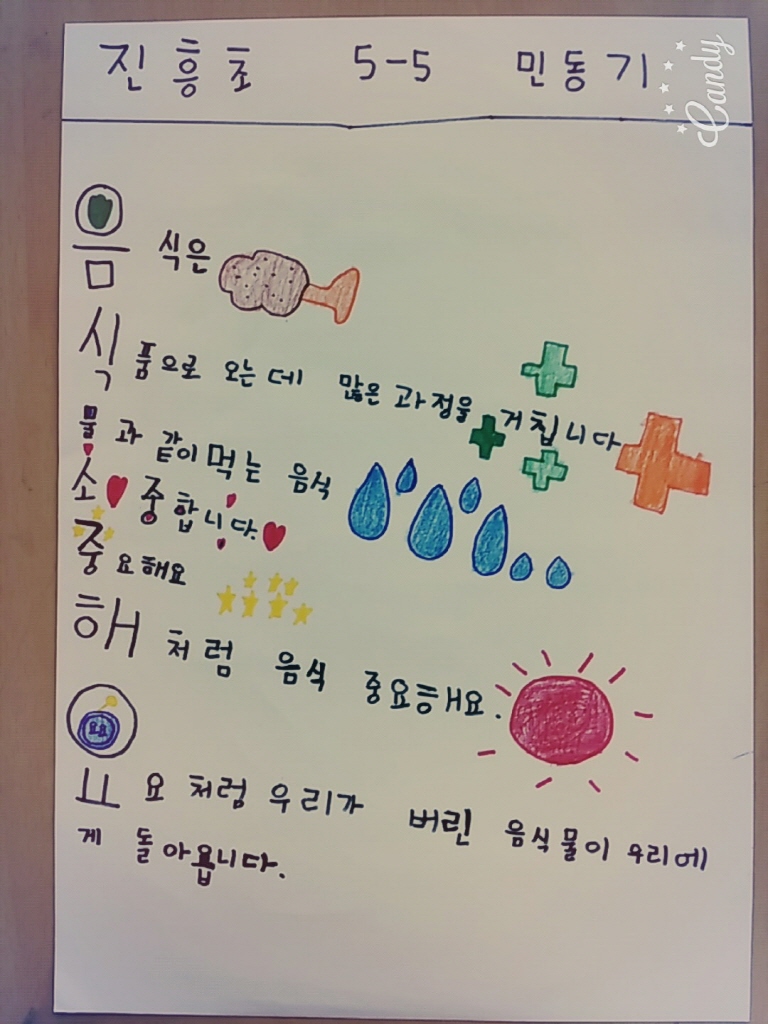 진흥초 5-5 민동기
Candy
음식은
식품으로 오는데 많은 과정을 거칩니다
물과 같이먹는 음식
소중합니다.
중요해요
해처럼 음식 중요해요.
요요처럼 우리가 버린 음식물이 우리에
게 돌아욥니다.